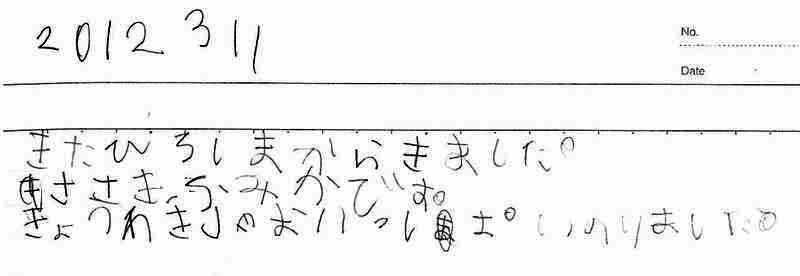 2012 3 11
No.
Date
きたひろしまからきました。
ささきふみかです。
きょうわきしゃおいっぱいのりました。